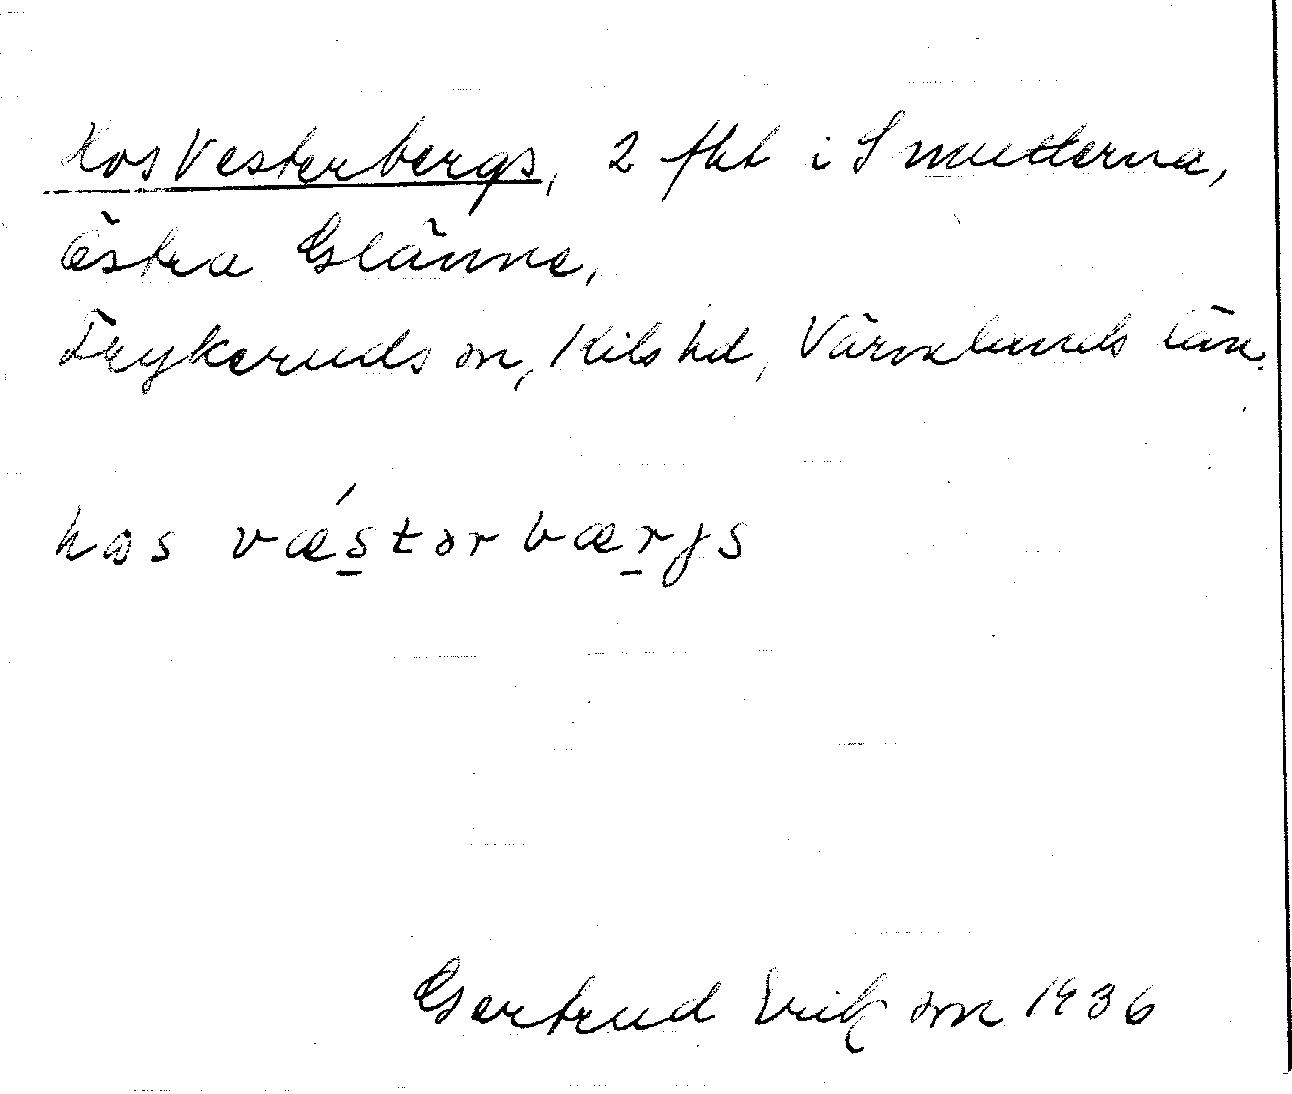 Hos Vesterbergs, 2 fht i Smutterna,
Östra Glänne,
Frykeruds sn, Kils hd, Värmlands län.
hos vǽstərbærjs
Gertrud Erikson 1936